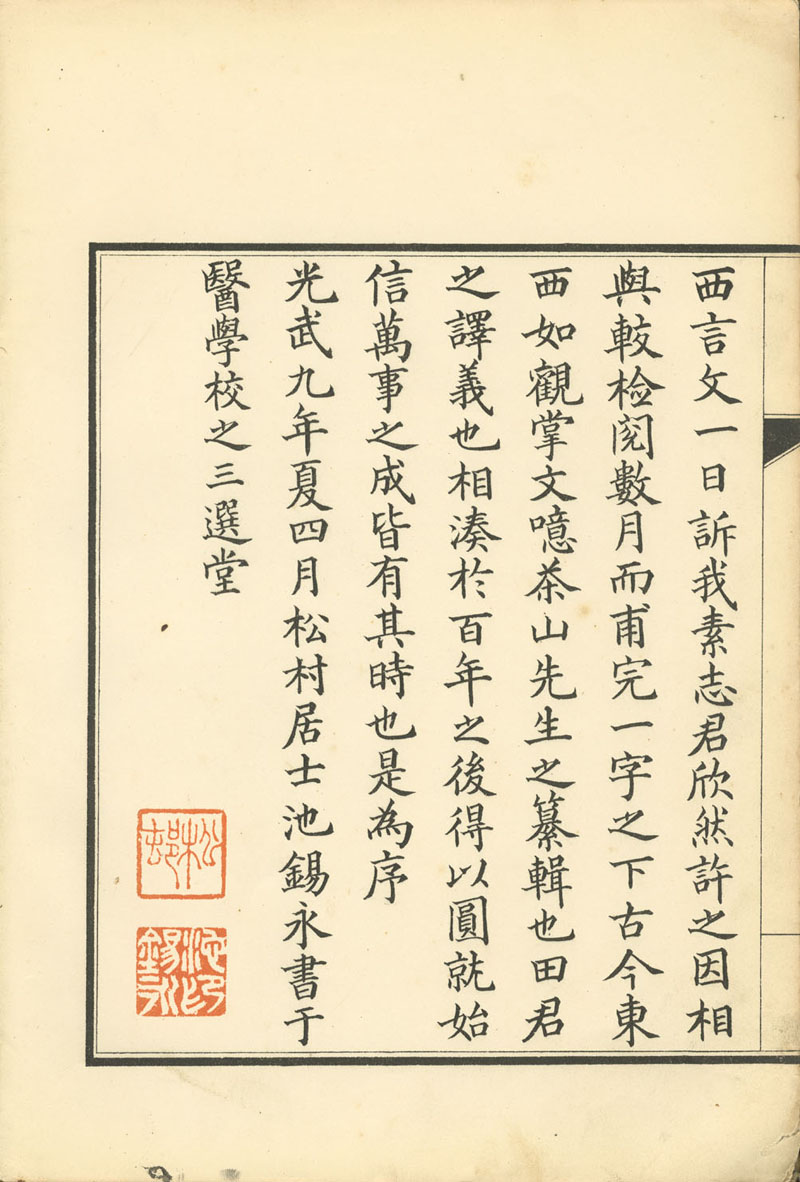 西言文一日訴我素志君欣然許之因相
與較檢閱數月而甫完一字之下古今東
西如觀掌文噫茶山先生之纂輯也田君
之譯義也相湊於百年之後得以圓就始
信萬事之成皆有其時也是為序
光武九年夏四月松村居士池錫永書于
醫學校之三選堂
松村
池錫永印